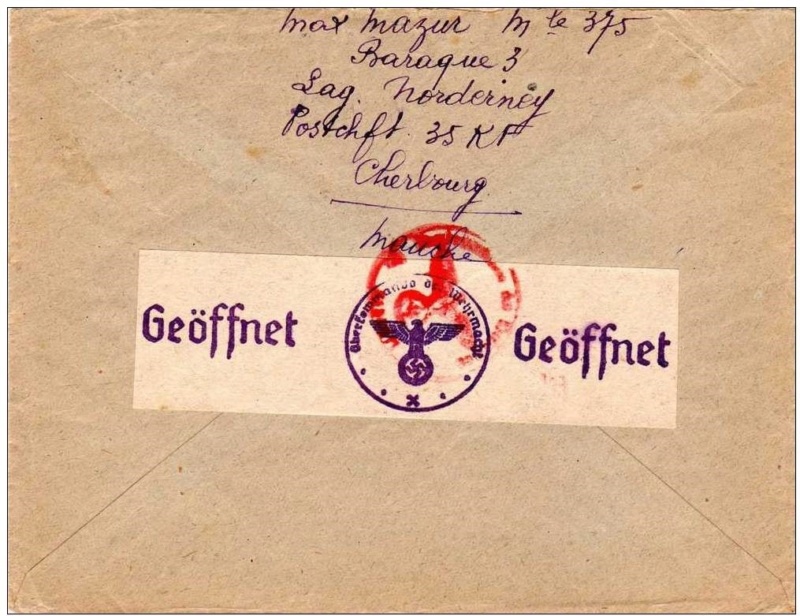 Max Mazur Mle 375
Baraque 3
Lag. Norderney
Postchft. 35 KP
Cherbourg
Manche
Geöffnet
Oberkommando der Wehrmacht
Geöffnet